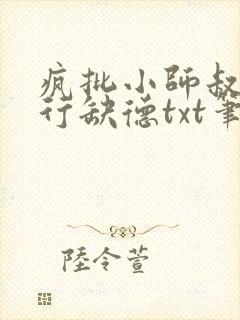 疯批小师叔
行缺德txt笔
陸令萱